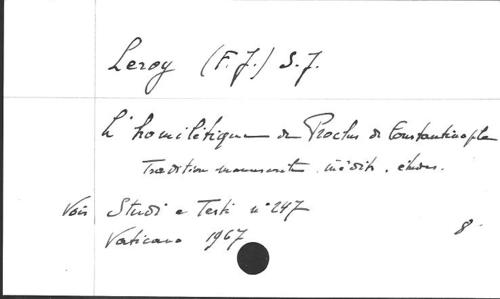 Leroy (F.J.) S.J.
L'homilétique de Proclus de Constantinople
Tradition manuscrite, inédits, études.
Voir Studi e Testi n° 247
Vaticano 1967
8.